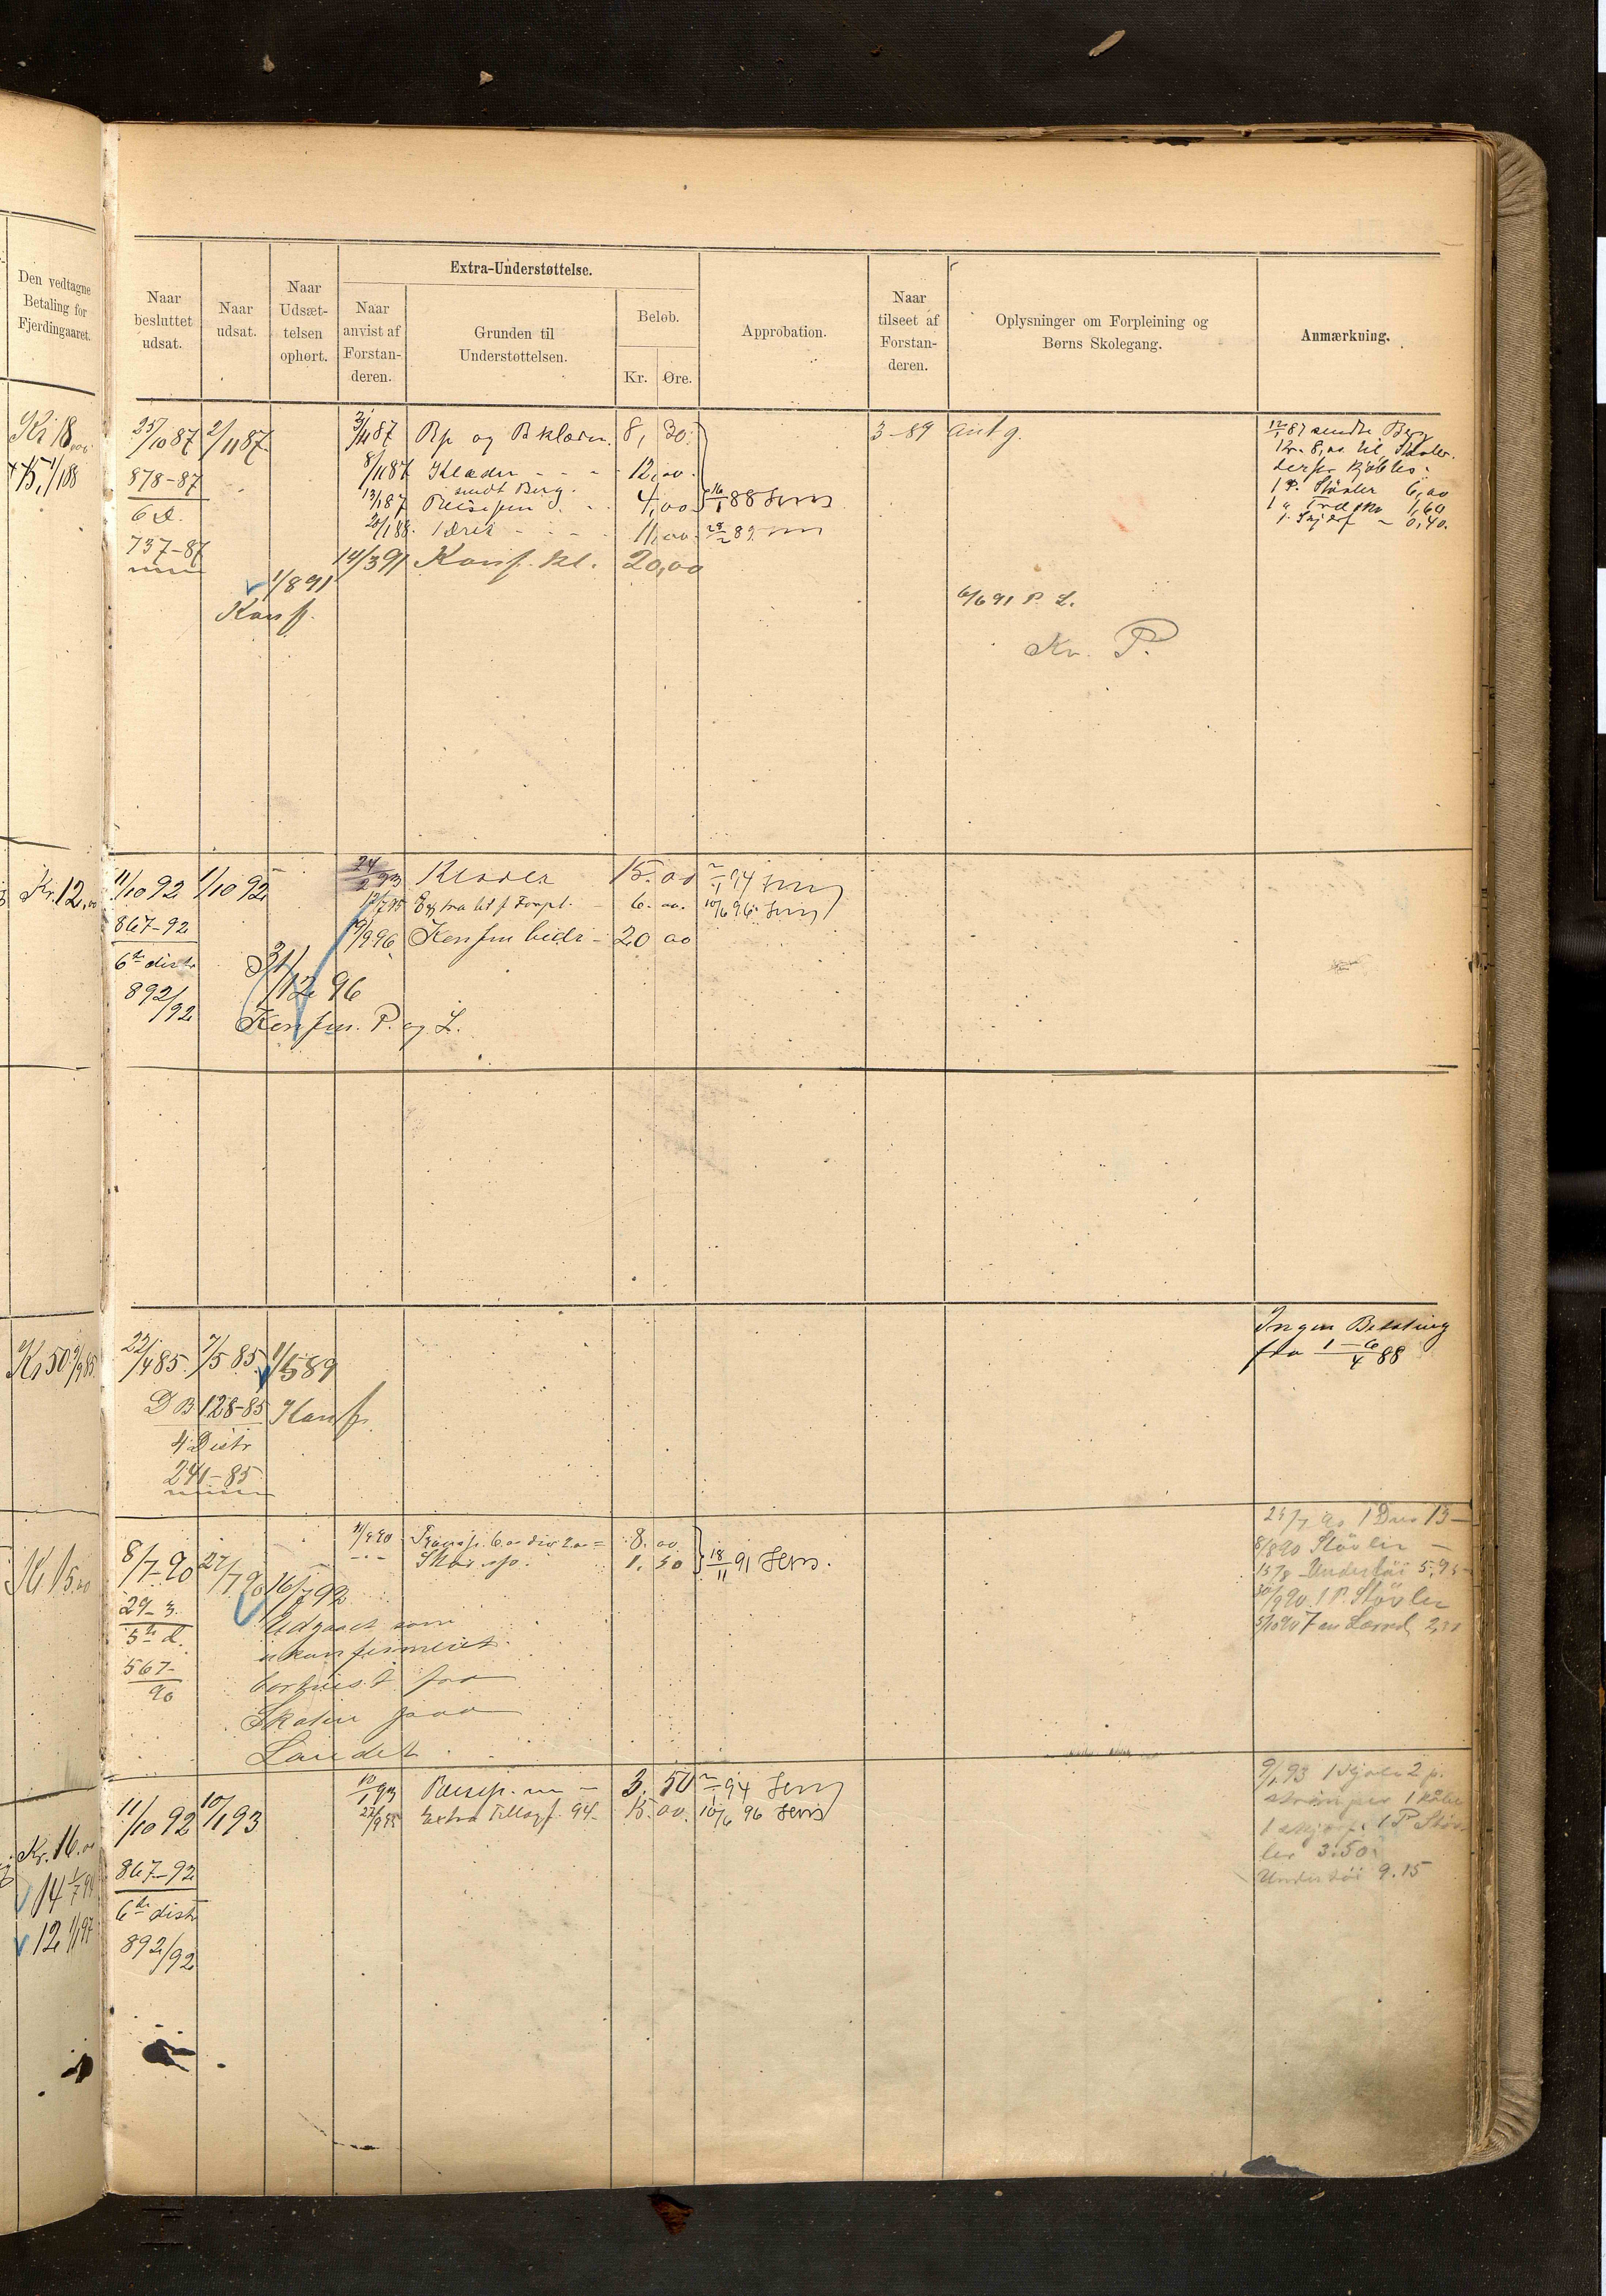 Den vedtagne
Betaling for
Fjerdingaaret.
Naar
besluttet
udsat.
Naar
udsat.
Naar
Udsæt-
telsen
ophørt.
Extra-Understøttelse.
Naar
anvist af
Forstan-
deren.
Grunden til
Understøttelsen.
Beløb.
Kr. Øre.
Approbation.
Naar
tilseet af
Forstan-
deren.
Oplysninger om Forpleining og
Børns Skolegang.
Anmærkning.
Kr 18,00
15, 1/1 88
25/10 87 2/11 87
878-87
6 D.
737-87
1/8 91
Konf.
3/11 87 Rp og B klæder 8, 30
8/11 87 Klæder - - - 12,00
sendt Berg.
Reisepen - - 4,00 16/1 88 Jens
20/1 88 - - - 11,00
14/3 91 Konf. kl. 20,00
3-89 ant g.
6/6 91 P. L.
Kv. P.
87 sendte Berg
Kr. 8,00 til Støvler.
derfor kjøbtes
1 P. Støvler 6,00
1 " Træsko 1,60
1 Skjerf - 0,40.
Kr. 12,00
11/10 92 1/10 92
867-92
6te distr
892/92
31/12 96
Konfm. P. og L.
24/2 93 Klæder 15.00 94 Jens
12/7 95 Extra til f. Forpl. - 6.00. 10/6 96 Jens
9/9 96 Konfm bidr - 20 00
Kr 50
22/4 85. 7/5 85. 1/5 89
D B 128-85 Konf.
4 Distr
241-85
Ingen Betaling
fra 1-6/4 88
Kr 15,00
8/7 90 27/7 90 16/7 92
29-3.
5te d.
567-
90
Udgaaet som
ukonfirmeret
bortreist fra
Skolen paa
Landet
Transp. 6.00 div 2.00 = 8.00
Skorep. 1.50
18/11 91 Jens.
1 Dres 13-
8/8 90 Støvler -
15/8 Undertøi 5,95
30/9 90. 1 P. Støvler
Kr. 16.00
14 1/7 94
12 1/1 97
11/10 92 10/1 93
867-92
6te distr
892/92
10/1 93 Reisep. m - 3,50 94 Jens
Extra Tillæg f. 94 - 15.00. 10/6 96 Jens
9/1 93 1 kjole 2 p.
strømper 1 kåbe
1 skjørt. 1 P Støv-
ler 3.50
Undertøi 9.15